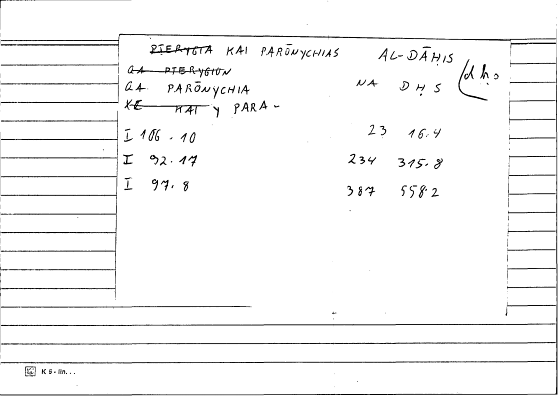 PTERYGIA KAI PARŌNYCHIAS AL-DĀḤIS (dḥs
GA PTERYGION
GA PARŌNYCHIA NA DḤS
KE KAI Y PARA-
I 106.10 23 16.4
I 92.17 234 315.8
I 97.8 387 558.2
K 5 - lin...